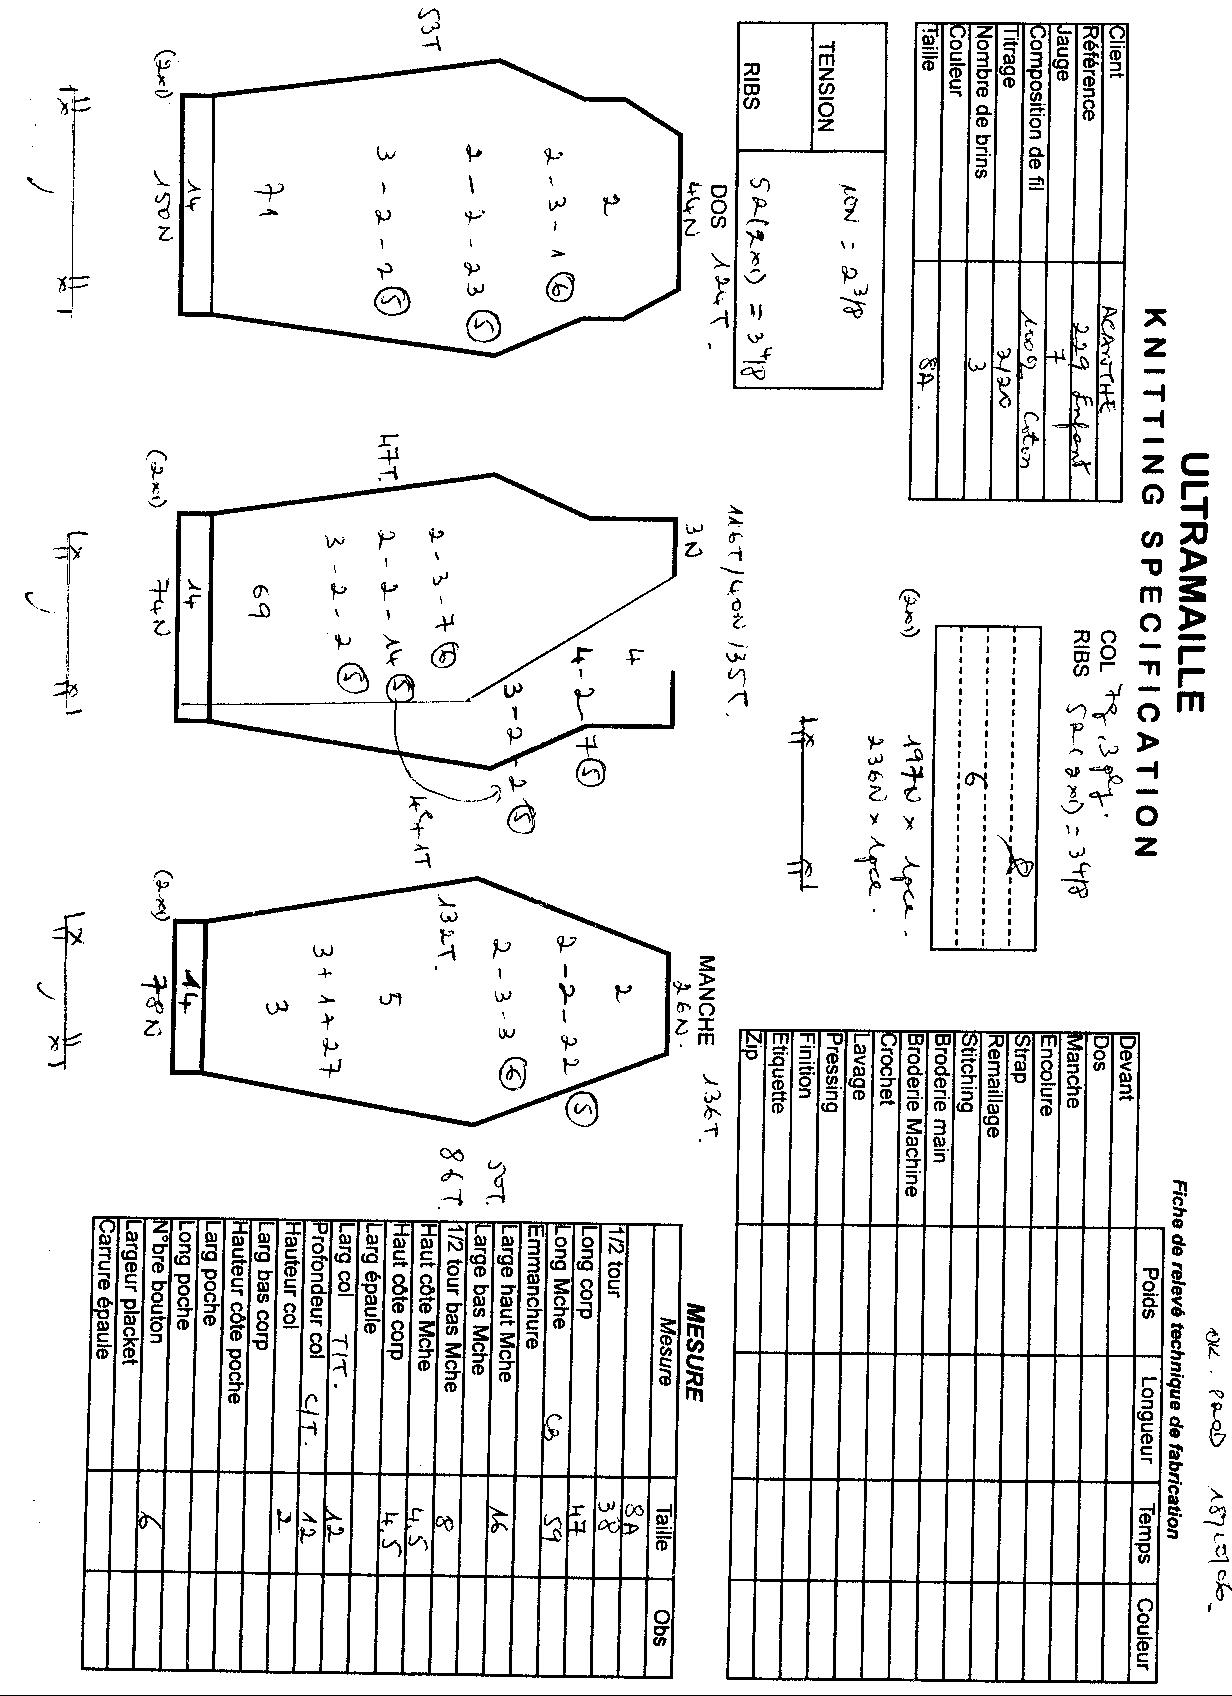 OK. PROD 18/10/06
ULTRAMAILLE
KNITTING SPECIFICATION
Client ACANTHE
Référence 229 Enfant
Jauge 7
Composition de fil 100% Coton
Titrage 2/20
Nombre de brins 3
Couleur
Taille 8A
COL 7g, 3 ply.
RIBS 5R(2x1) = 3 4/8
6
(2x1) 197N x 1pce.
236N x 1pce.
Fiche de relevé technique de fabrication
Poids Longueur Temps Couleur
Devant
Dos
Manche
Encolure
Strap
Remaillage
Stitching
Broderie main
Broderie Machine
Crochet
Lavage
Pressing
Finition
Etiquette
Zip
TENSION 10N = 2 3/8
RIBS 5R(2x1) = 3 4/8
DOS 124T.
44N
2
2 - 3 - 1 (6)
2 - 2 - 23 (5)
53T
3 - 2 - 2 (5)
71
14
(2x1) 150N
116T/40N/35T.
3N
4
4 - 2 - 7 (5)
3 - 2 - 2 (5)
2 - 3 - 7 (6)
4e+1T
47T.
2 - 2 - 14 (5)
3 - 2 - 2 (5)
69
14
(2x1) 74N
MANCHE 136T.
26N.
2
2 - 2 - 22 (5)
2 - 3 - 3 (6)
50T.
132T.
86T.
5
3 + 1 + 27
3
14
(2x1) 78N
MESURE
Mesure Taille Obs
8A
1/2 tour 38
Long corp 47
Long Mche CB 59
Emmanchure
Large haut Mche 16
Large bas Mche
1/2 tour bas Mche 8
Haut côte Mche 4,5
Haut côte corp 4,5
Larg épaule
Larg col T/T. 12
Profondeur col C/T. 12
Hauteur col 2
Larg bas corp
Hauteur côte poche
Larg poche
Long poche
N°bre bouton 6
Largeur placket
Carrure épaule